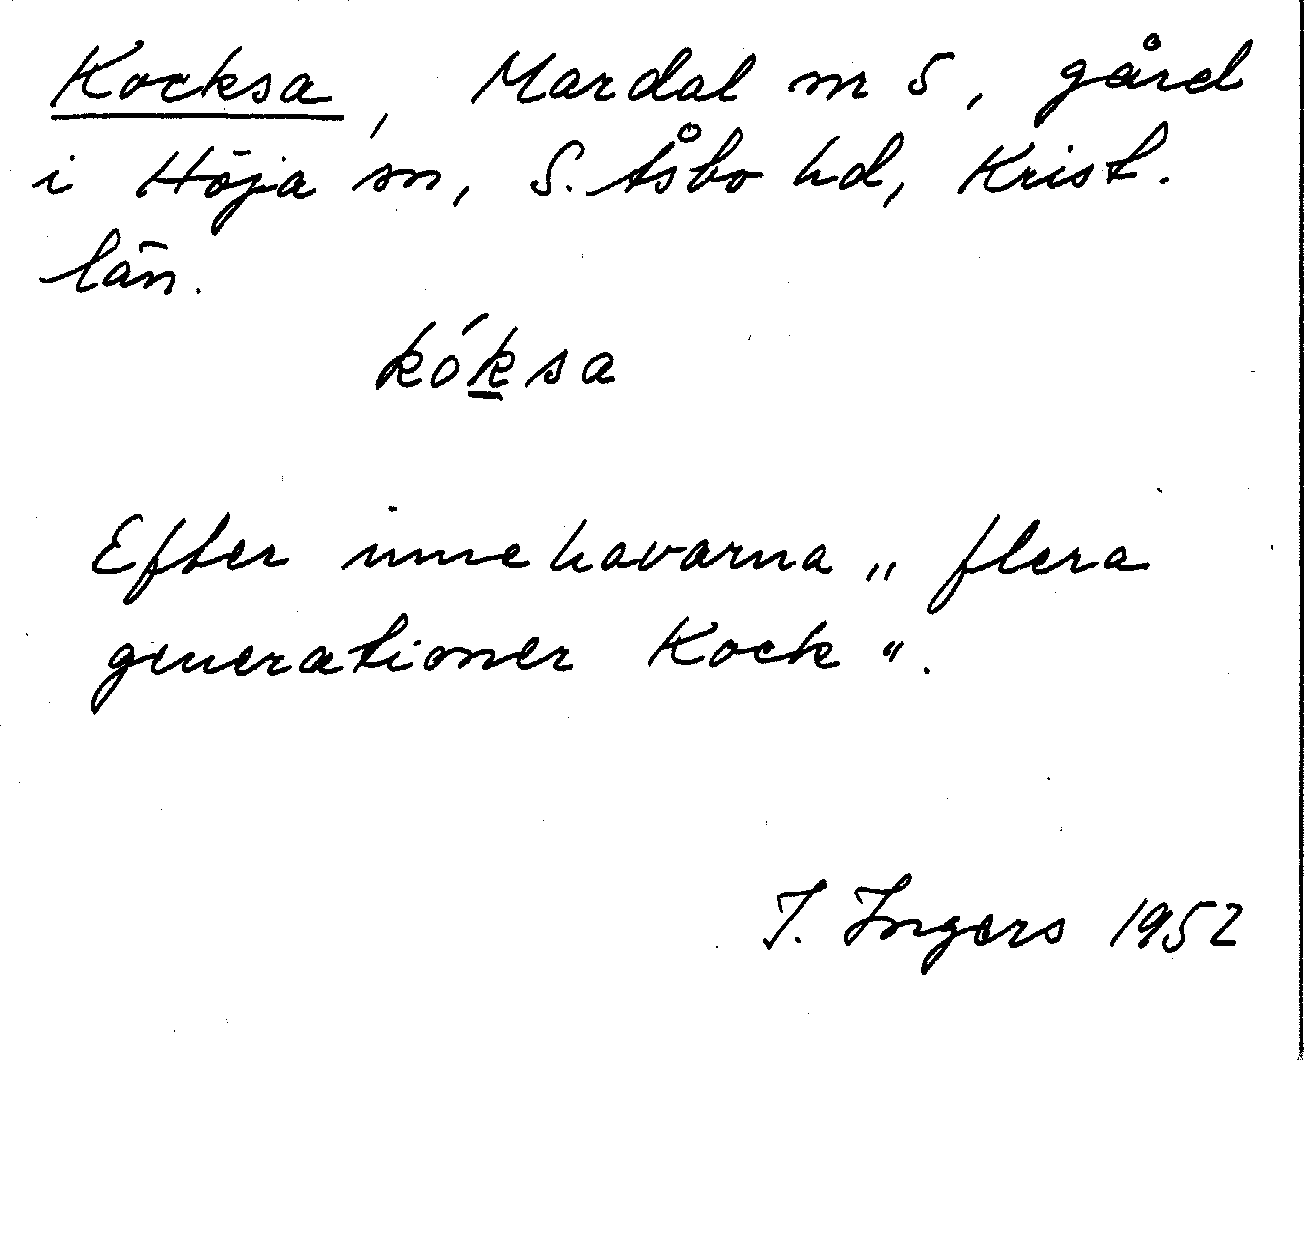 Kocksa, Mardal nr 5, gård
i Höja sn, S. Åsbo hd, Krist.
län.
kóksa
Efter innehavarna „flera
generationer Kock“.
I. Ingers 1952